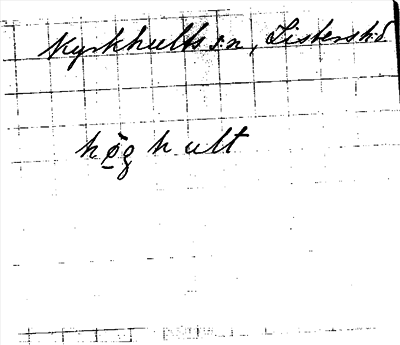 Kyrkhults sn, Listers hd
hög hult